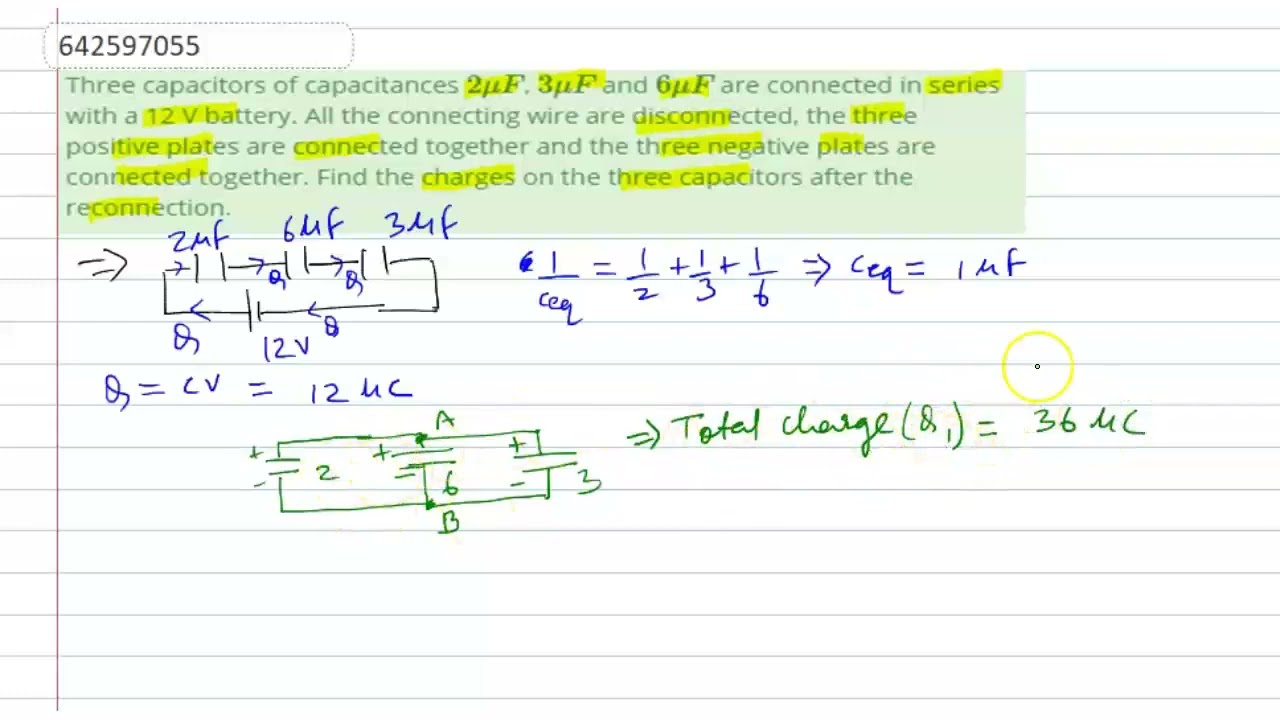 642597055
Three capacitors of capacitances 2μF, 3μF and 6μF are connected in series
with a 12 V battery. All the connecting wire are disconnected, the three
positive plates are connected together and the three negative plates are
connected together. Find the charges on the three capacitors after the
reconnection.
2μF 6μF 3μF
⇒ Q Q
1/Ceq = 1/2 + 1/3 + 1/6 ⇒ Ceq = 1 μF
Q Q
12V
Q = CV = 12 μC
A
⇒ Total charge (Q1) = 36 μC
+ + +
- 2 = 6 - 3
B